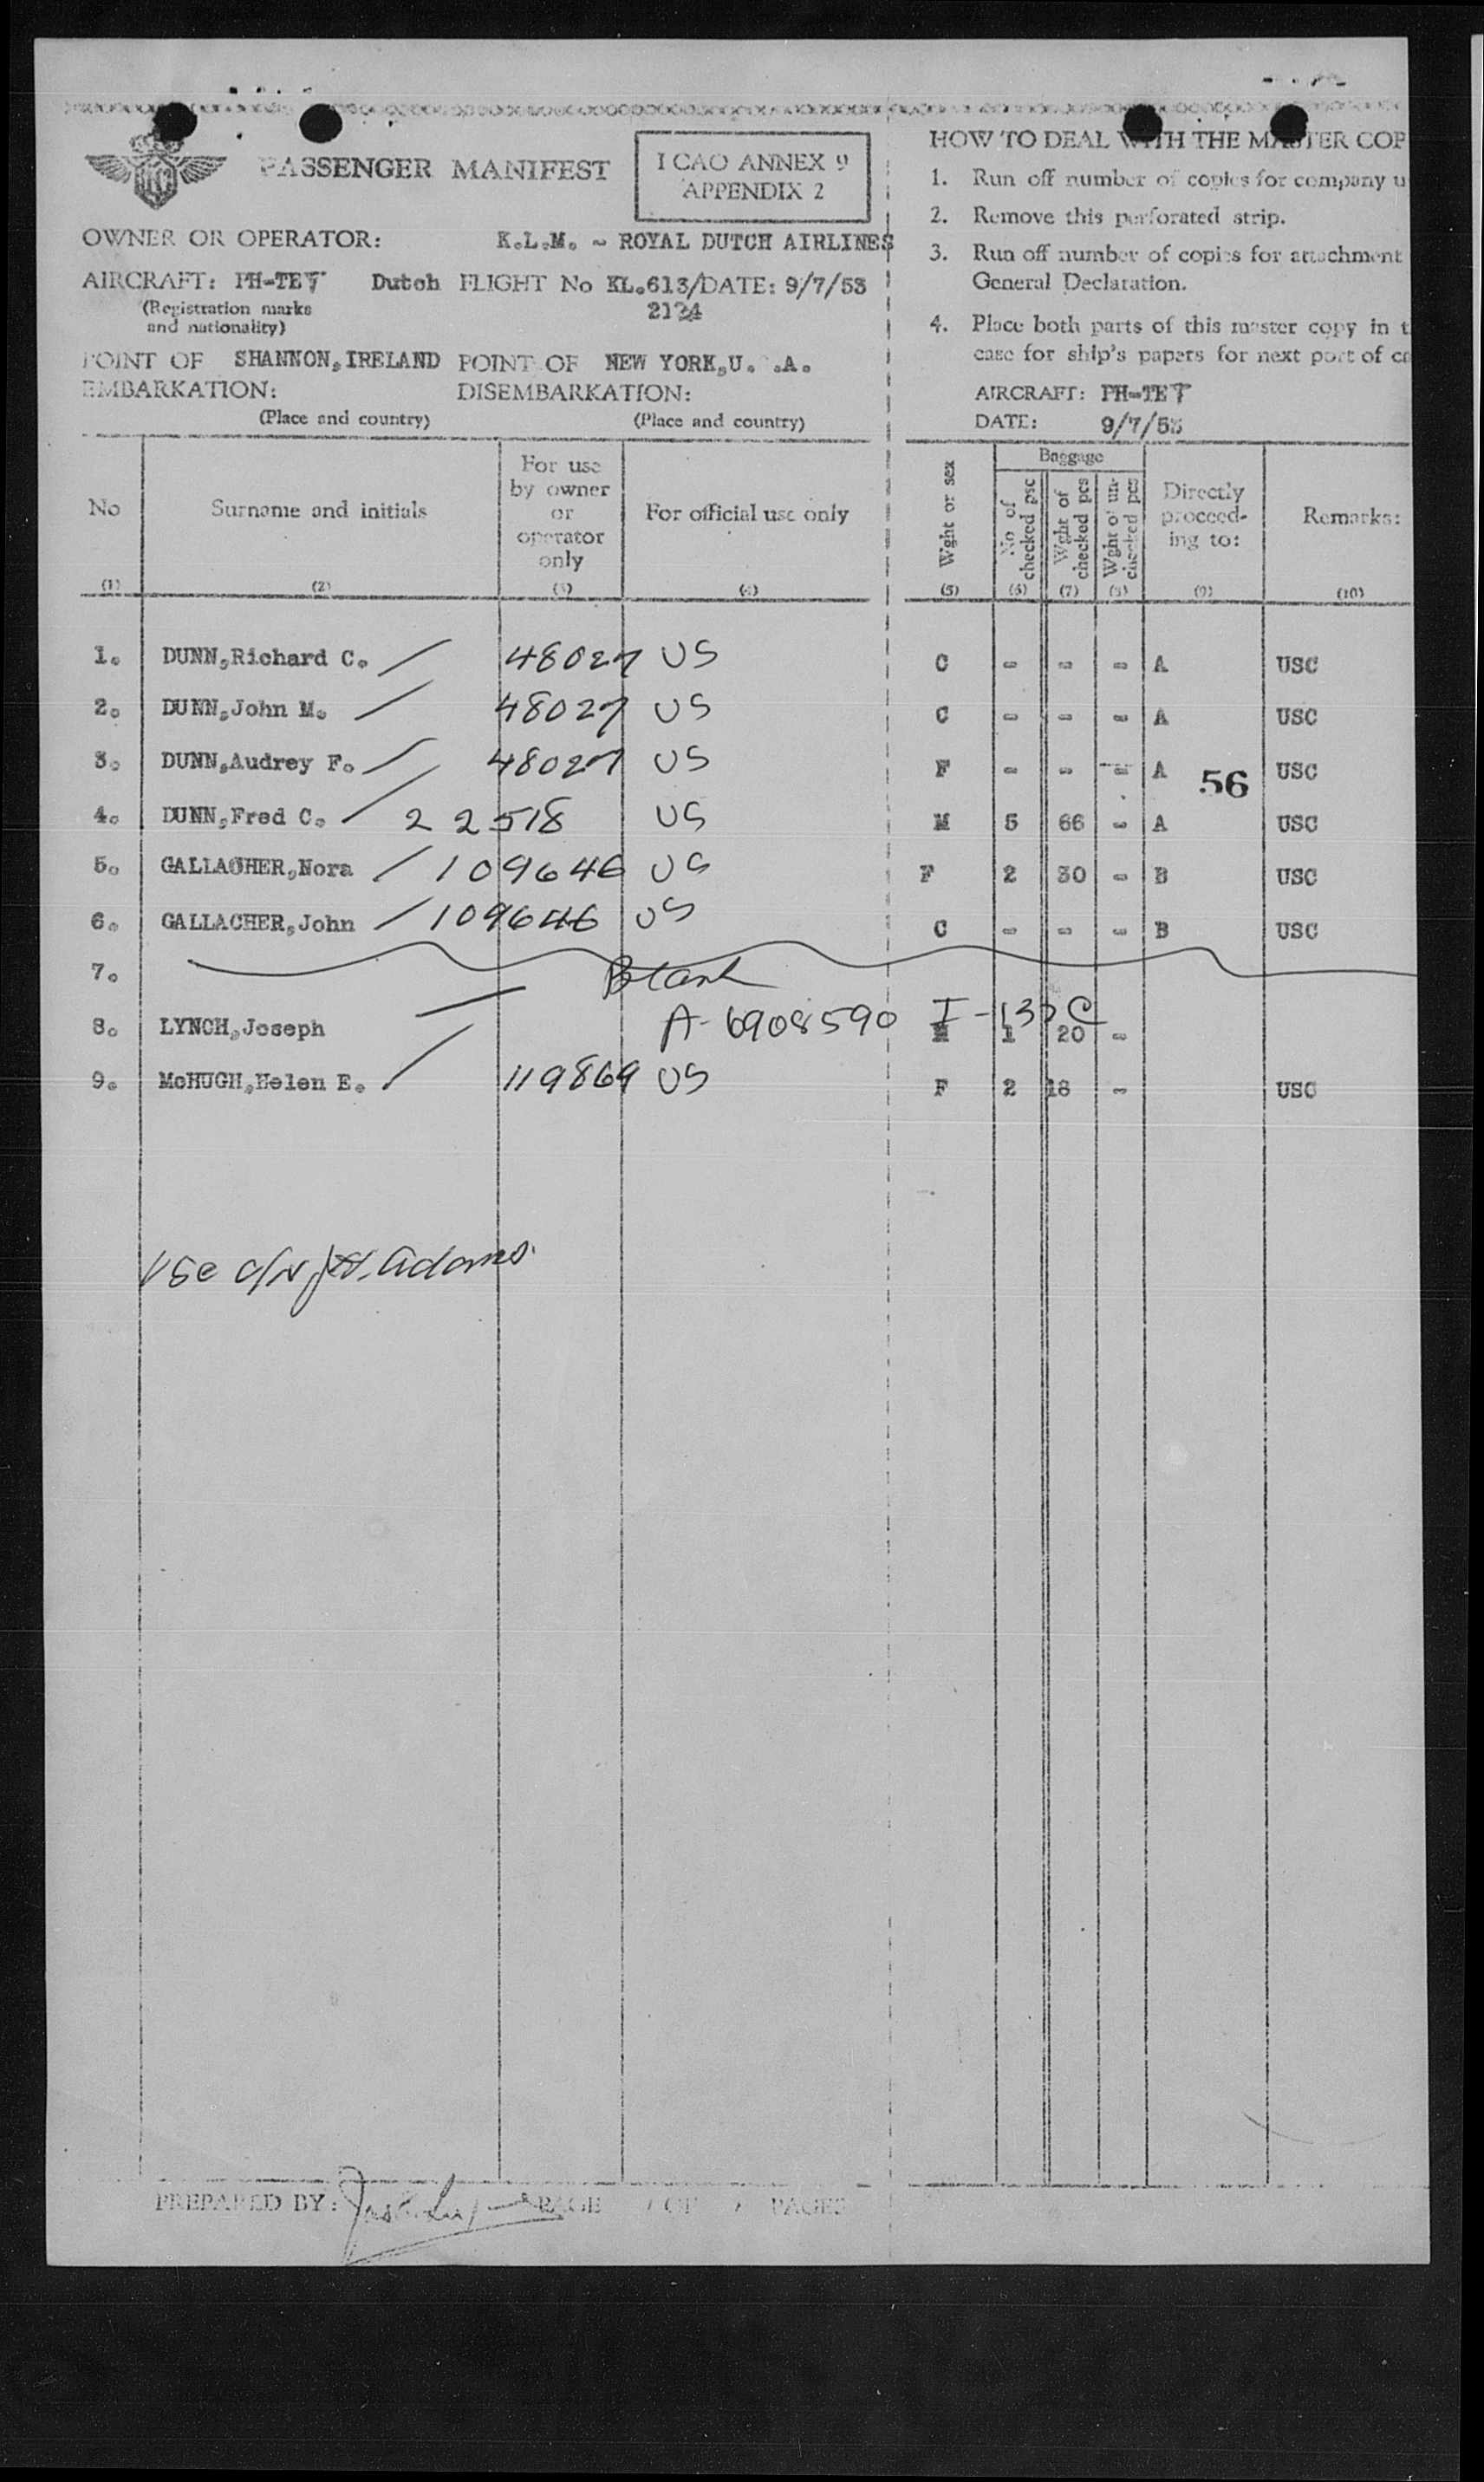 PASSENGER MANIFEST
I CAO ANNEX 9
APPENDIX 2
OWNER OR OPERATOR: K.L.M. - ROYAL DUTCH AIRLINES
AIRCRAFT: PH-TET Dutch FLIGHT No KL.613/DATE: 9/7/53
(Registration marks
and nationality)
2124
POINT OF SHANNON,IRELAND POINT OF NEW YORK,U. .A.
EMBARKATION: DISEMBARKATION:
(Place and country) (Place and country)
HOW TO DEAL WITH THE MASTER COP
1. Run off number of copies for company u
2. Remove this perforated strip.
3. Run off number of copies for attachment
General Declaration.
4. Place both parts of this master copy in t
case for ship's papers for next port of ca
AIRCRAFT: PH-TET
DATE: 9/7/53
No
Surname and initials
For use
by owner
or
operator
only
For official use only
Wght or sex
Baggage
No of
checked psc
Wght of
checked pcs
Wght of un-
checked pcs
Directly
proceed-
ing to:
Remarks:
(1) (2) (3) (4) (5) (6) (7) (8) (9) (10)
1. DUNN,Richard C. 48027 US C - - - A USC
2. DUNN,John M. 48027 US C - - - A USC
3. DUNN,Audrey F. 48027 US F - - - A USC
56
4. DUNN,Fred C. 22518 US M 5 66 - A USC
5. GALLAGHER,Nora 109646 US F 2 30 - B USC
6. GALLACHER,John 109646 US C - - - B USC
7. Blank
8. LYNCH,Joseph A-6908590 I-133C M 1 20 -
9. McHUGH,Helen E. 119869 US F 2 18 - USC
Adams
PREPARED BY: PAGE / OF / PAGES